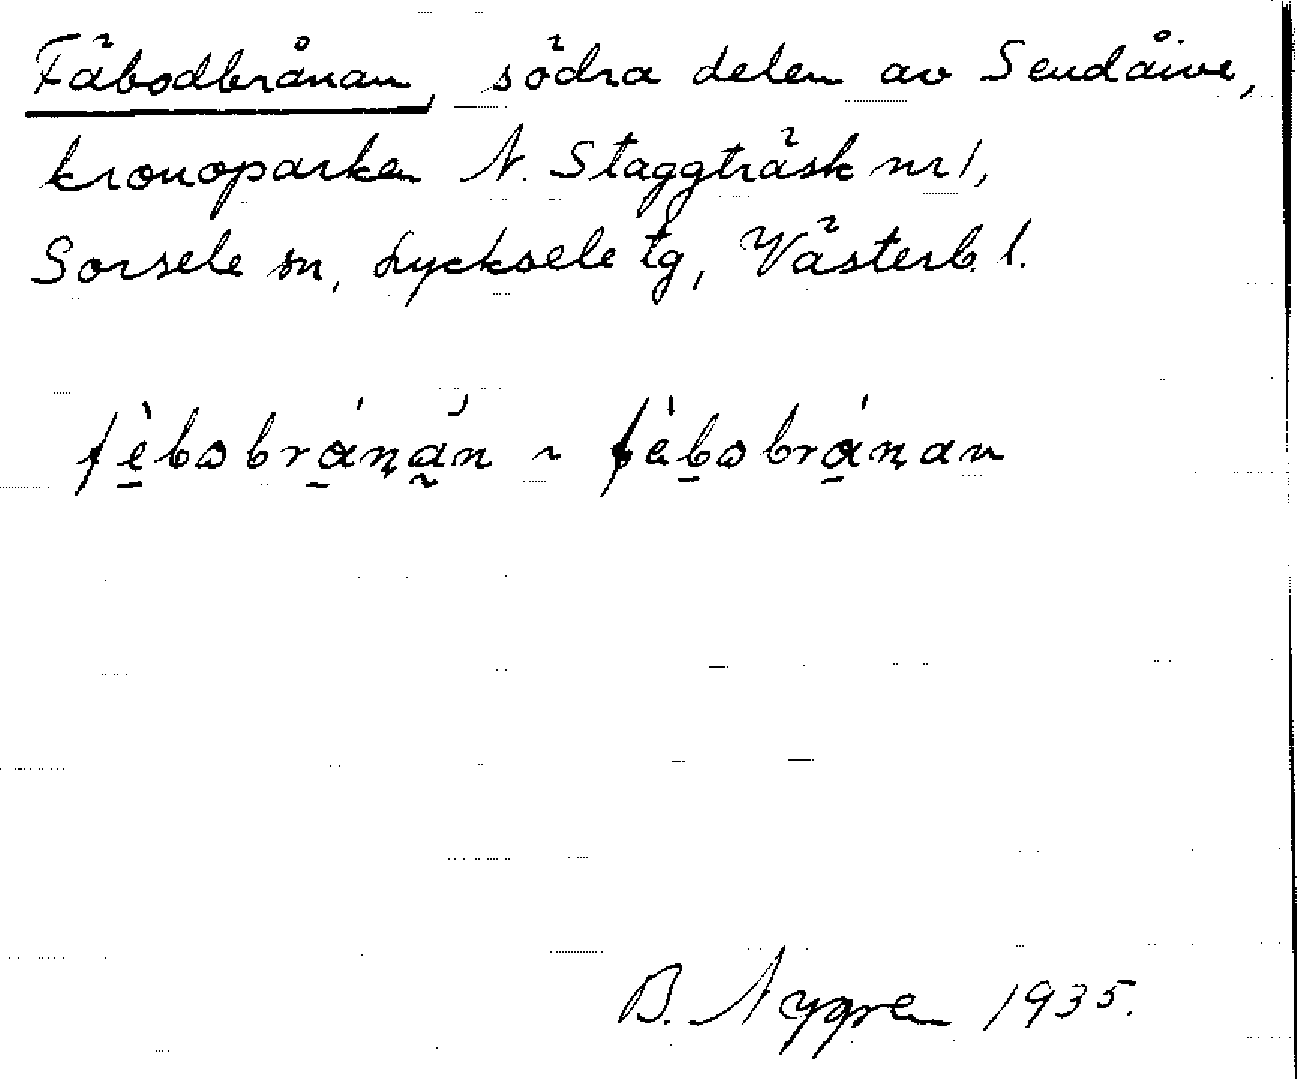 Fäbodbrånan, södra delen av Sendåive,
kronoparken N. Staggträsk nr 1,
Sorsele sn, Lycksele tg, Västerb. l.
fèbobránán ~ fèbobránan
B. Nygren 1935.